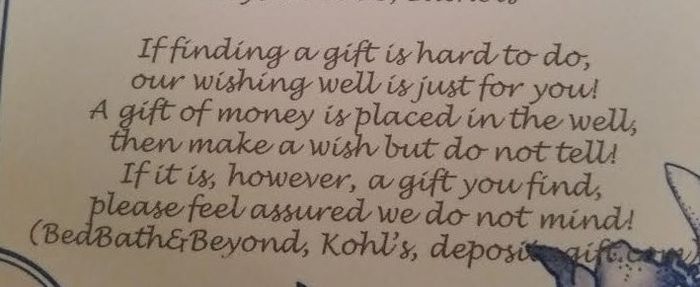 If finding a gift is hard to do,
our wishing well is just for you!
A gift of money is placed in the well,
then make a wish but do not tell!
If it is, however, a gift you find,
please feel assured we do not mind!
(BedBath&Beyond, Kohl's, depositagift.com)